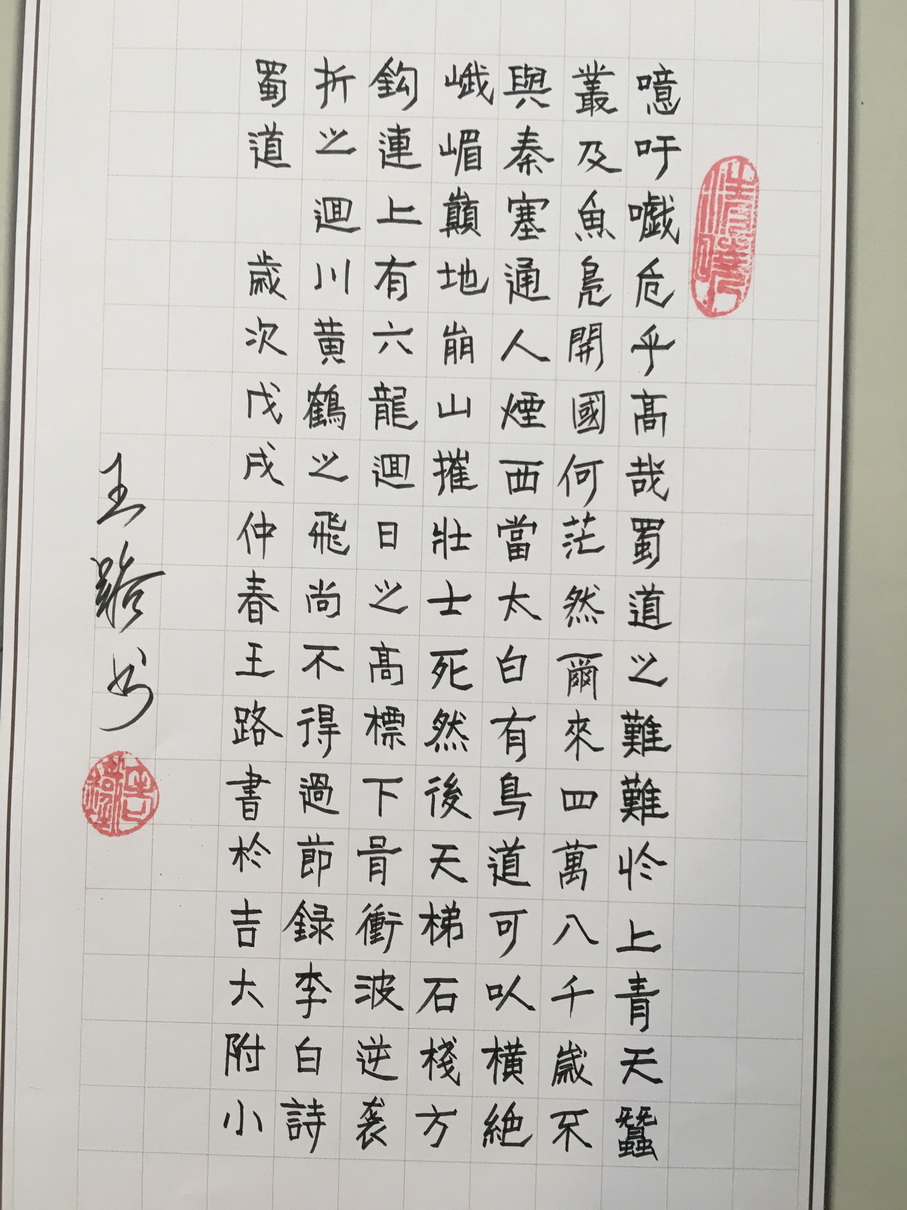 噫吁嚱危乎高哉蜀道之難難於上青天蠶
叢及魚鳧開國何茫然爾來四萬八千歲不
與秦塞通人煙西當太白有鳥道可以橫絶
峨嵋巔地崩山摧壯士死然後天梯石棧方
鈎連上有六龍迴日之高標下衝波逆
折之迴川黃鶴之飛尚不得過節録李白詩
蜀道 歲次戊戌仲春王路書於吉大附小
王路书